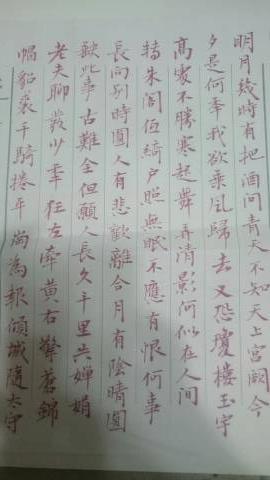 明月幾時有把酒問青天不知天上宮闕今
夕是何年我欲乘風歸去又恐瓊樓玉宇
高處不勝寒起舞弄清影何似在人間
轉朱閣低綺戶照無眠不應有恨何事
長向別時圓人有悲歡離合月有陰晴圓
缺此事古難全但願人長久千里共嬋娟
老夫聊發少年狂左牽黃右擎蒼錦
帽貂裘千騎捲平崗為報傾城隨太守